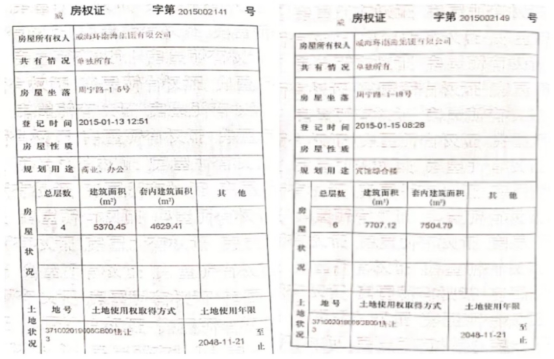 房权证 字第 2015002141 号
房屋所有权人 威海环渤海集团有限公司
共有情况 单独所有
房屋坐落 -1-5号
登记时间 2015-01-13 12:51
房屋性质
规划用途 商业、办公
房屋状况
总层数 建筑面积(m²) 套内建筑面积(m²) 其他
4 5370.45 4629.41
土地状况
地号 土地使用权取得方式 土地使用年限
3 至
2048-11-21 止
房权证 字第 2015002149 号
房屋所有权人 威海环渤海集团有限公司
共有情况 单独所有
房屋坐落
登记时间 2015-01-15 08:28
房屋性质
规划用途 宾馆综合楼
房屋状况
总层数 建筑面积(m²) 套内建筑面积(m²) 其他
6 7707.12 7504.79
土地状况
地号 土地使用权取得方式 土地使用年限
3 至
2048-11-21 止